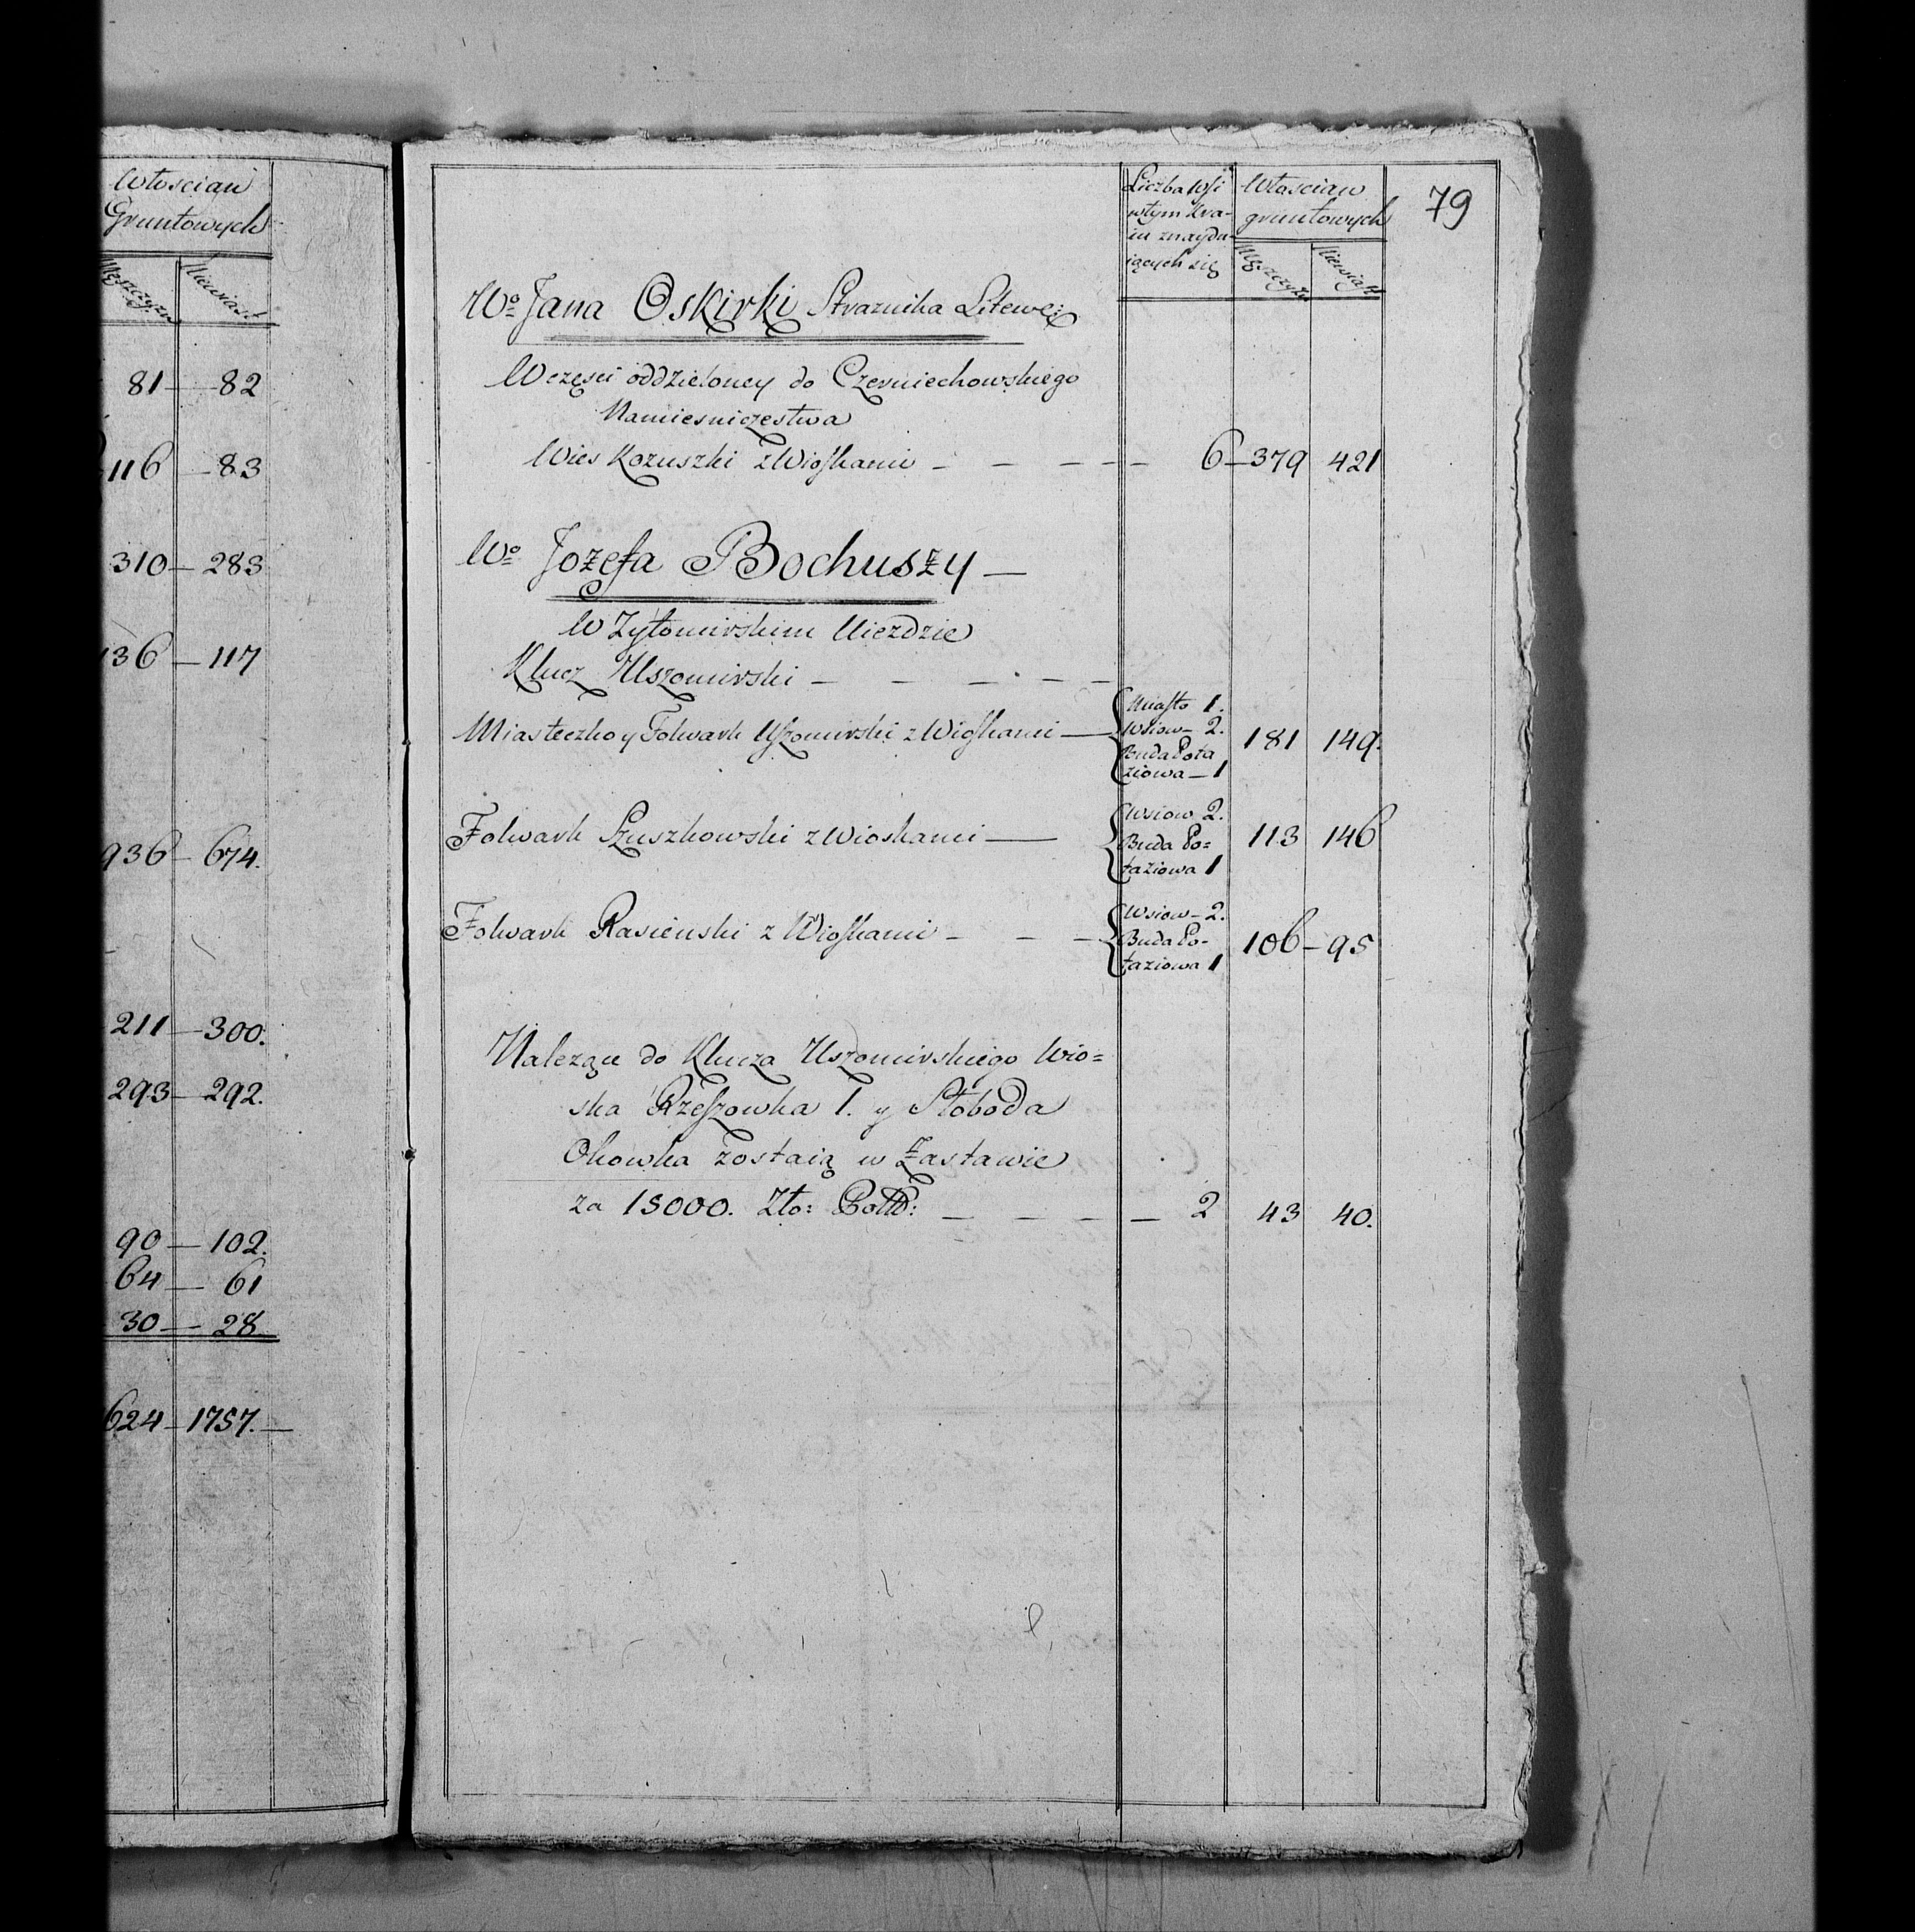 Włoscian
Gruntowych
Męszczyzn
Niewiast
81 — 82
116 — 83
310 — 283
136 — 117
936 — 674.
211 — 300.
293 — 292.
90 — 102.
64 — 61
30 — 28
624 — 1757. —
79
Liczba Wsi
w tym Kra-
iu znaydu-
iących się
Włoscian
gruntowych
Męszczyzn
Niewiast
Wo Jana Oskirki Straznika Litewẽ:
W częsci oddzieloney do Czerniechowskiego
Namiesniczestwa
Wies Kozuszki z Wioskami — — — — — 6 — 379 421
Wo Jozefa Bochuszy —
W Zytomirskim Uiezdzie
Klucz Uszomirski — — — — —
Miasteczko y Folwark Uszomirski z Wioskami —
Miasto 1.
Wsiow — 2.
Buda Pota
ziowa — 1
181 149.
Folwark Szuszkowski z Wioskami —
Wsiow 2.
Buda Po=
taziowa 1
113 146
Folwark Rasienski z Wioskami — — —
Wsiow — 2.
Buda Po-
taziowa 1
106 — 95
Należące do Klucza Uszomirskiego Wio=
ska Rzeszowka 1. y Słoboda
Okowka zostaią w Zastawie
za 15000. Zło: Pols: — — — — 2 43 40.